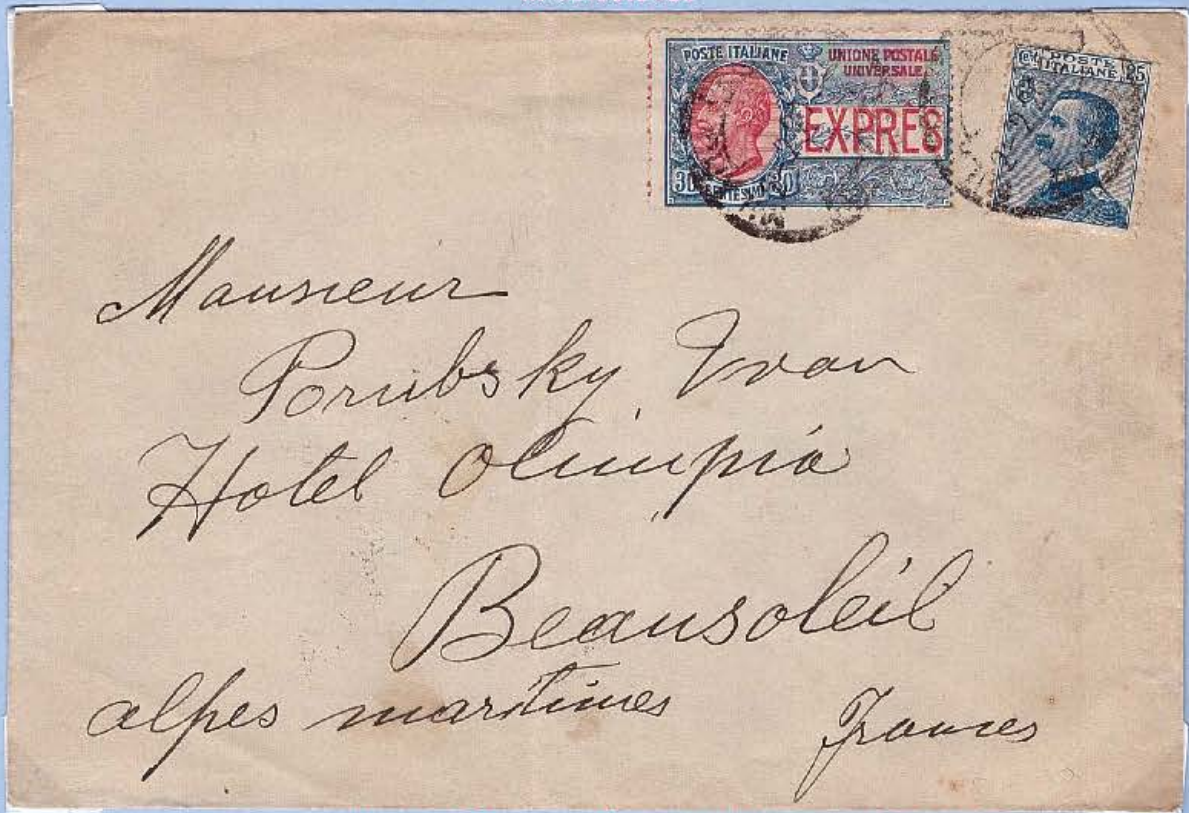 POSTE ITALIANE UNIONE POSTALE UNIVERSALE
EXPRES
30 CENTESIMI 30
POSTE ITALIANE 25
Mausieur
Porubsky Ivan
Hotel Olimpia
Beausoleil
alpes maritimes Frances